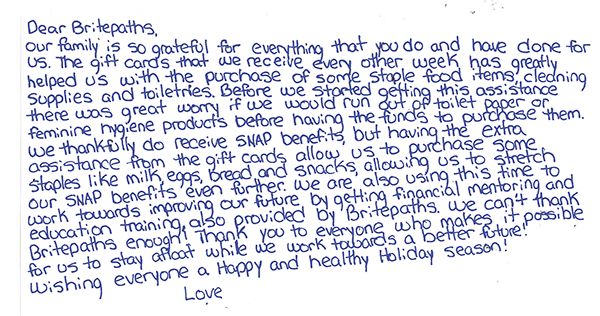 Dear Britepaths,
our family is so grateful for everything that you do and have done for
us. The gift cards that we receive every other week has greatly
helped us with the purchase of some staple food items, cleaning
supplies and toiletries. Before we started getting this assistance
there was great worry if we would run out of toilet paper or
feminine hygiene products before having the funds to purchase them.
we thankfully do receive SNAP benefits, but having the extra
assistance from the gift cards allow us to purchase some
staples like milk, eggs, bread and snacks, allowing us to stretch
our SNAP benefits even further. we are also using this time to
work towards improving our future by getting financial mentoring and
education training, also provided by Britepaths. We can't thank
Britepaths enough! Thank you to everyone who makes it possible
for us to stay afloat while we work towards a better future!
wishing everyone a Happy and healthy Holiday season!
Love